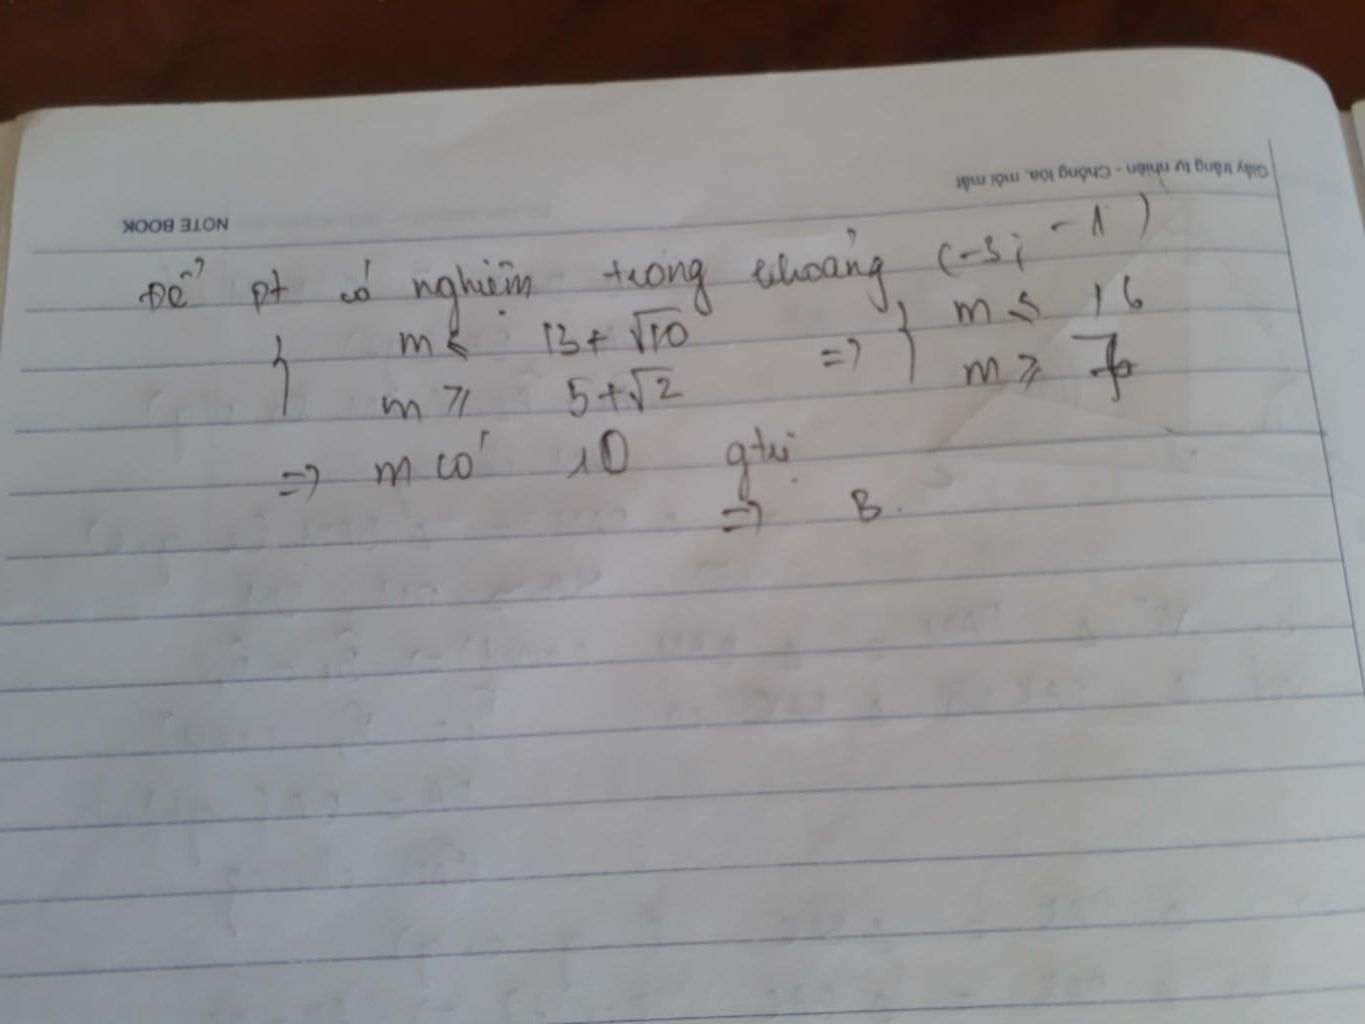 Giấy trắng tự nhiên - Chống lóa, mỏi mắt
NOTE BOOK
Để pt có nghiệm trong khoảng (-3; -1)
{ m ≤ 13 + √10 => { m ≤ 16
m ≥ 5 + √2 m ≥ 7
=> m có 10 gtrị
=> B.